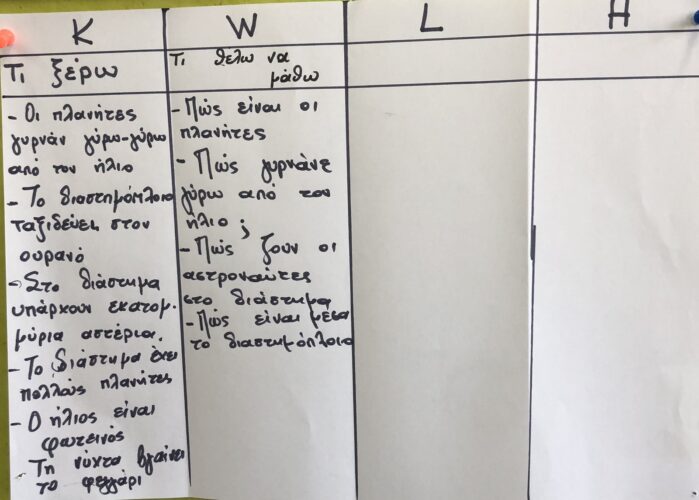 K
W
L
H
Τι ξέρω
Τι θέλω να
μάθω
- Οι πλανήτες
γυρνάν γύρω-γύρω
από τον ήλιο
- Το διαστημόπλοιο
ταξιδεύει στον
ουρανό
- Στο διάστημα
υπάρχουν εκατομ-
μύρια αστέρια.
- Το διάστημα έχει
πολλούς πλανήτες
- Ο ήλιος είναι
φωτεινός
- Τη νύχτα βγαίνει
το φεγγάρι
- Πώς είναι οι
πλανήτες
- Πώς γυρνάνε
γύρω από τον
ήλιο ;
- Πώς ζουν οι
αστροναύτες
στο διάστημα
- Πώς είναι μέσα
το διαστημόπλοιο